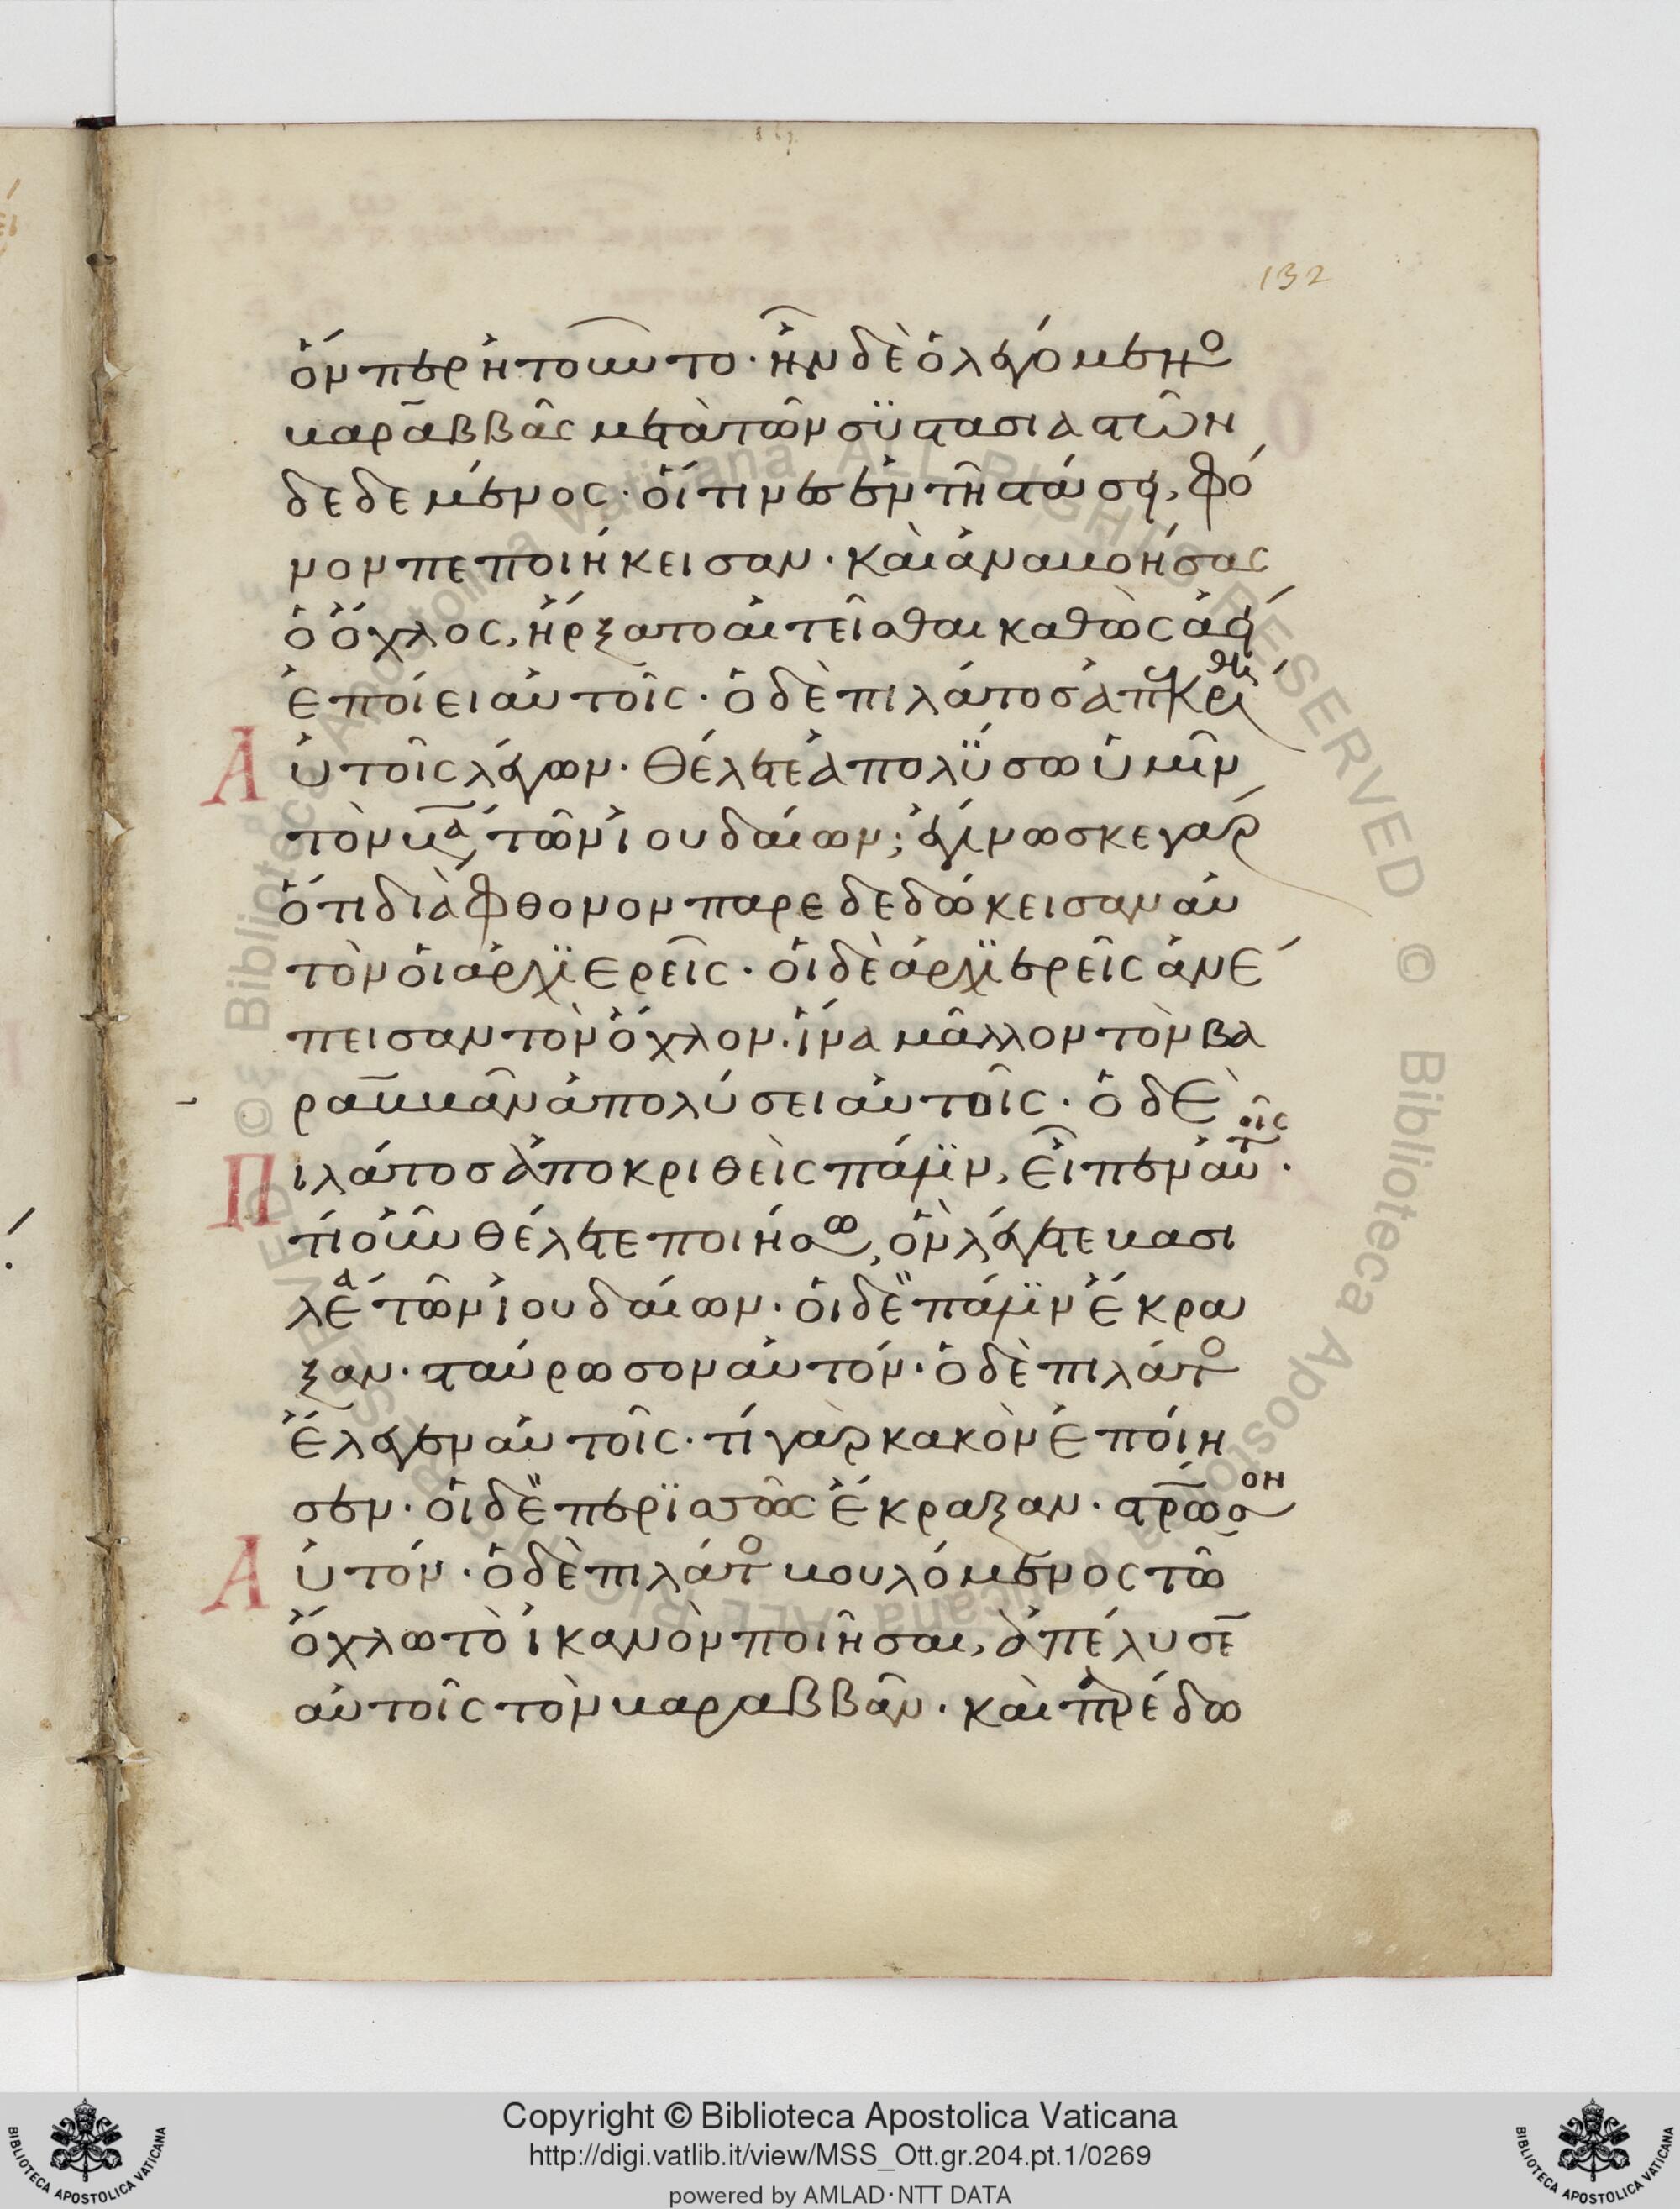 132
ὅνπερ ἠτοῦντο· ἦν δὲ ὁ λεγόμενο
βαραββᾶς μετὰ τῶν συστασιαστῶν
δεδεμένος· οἵτινες ἐν τῇ στάσει, φό
νον πεποιήκεισαν· καὶ ἀναβοήσας
ὁ ὄχλος, ἤρξατο αἰτεῖσθαι καθὼς ἀεὶ
ἐποίει αὐτοῖς· ὁ δὲ πιλάτος ἀπεκρίθη
Αὐτοῖς λέγων· Θέλετε ἀπολύσω ὑμῖν
τὸν βα τῶν ἰουδαίων; ἐγίνωσκε γὰρ
ὅτι διὰ φθονον παρεδεδώκεισαν αὐ
τὸν οἱ ἀρχϊερεῖς· οἱ δὲ ἀρχϊερεῖς ἀνέ
πεισαν τὸν ὄχλον· ἵνα μᾶλλον τὸν βα
ραββᾶν ἀπολύσει αὐτοῖς· ὁ δὲ
Πιλάτος ἀποκριθεὶς πάλϊν, εἶπεν αὐτοῖς·
τί οὖν θέλετε ποιήσω, ὃν λέγετε βασι
λέα τῶν ἰουδαίων· οἱ δὲ πάλϊν ἔκρα
ξαν· σταύρωσον αὐτόν· ὁ δὲ πιλάτο
ἔλεγεν αὐτοῖς· τί γὰρ κακὸν ἐποίη
σεν· οἱ δὲ περϊσσῶς ἔκραξαν· στρωσον
Αὐτόν· ὁ δὲ πιλάτο βουλόμενος τῶ
ὄχλω τὸ ἱκανὸν ποιῆσαι, ἀπέλυσε
αὐτοῖς τὸν βαραββᾶν· καὶ πρέδω
Copyright © Biblioteca Apostolica Vaticana
http://digi.vatlib.it/view/MSS_Ott.gr.204.pt.1/0269
powered by AMLAD·NTT DATA
BIBLIOTECA APOSTOLICA VATICANA
BIBLIOTECA APOSTOLICA VATICANA